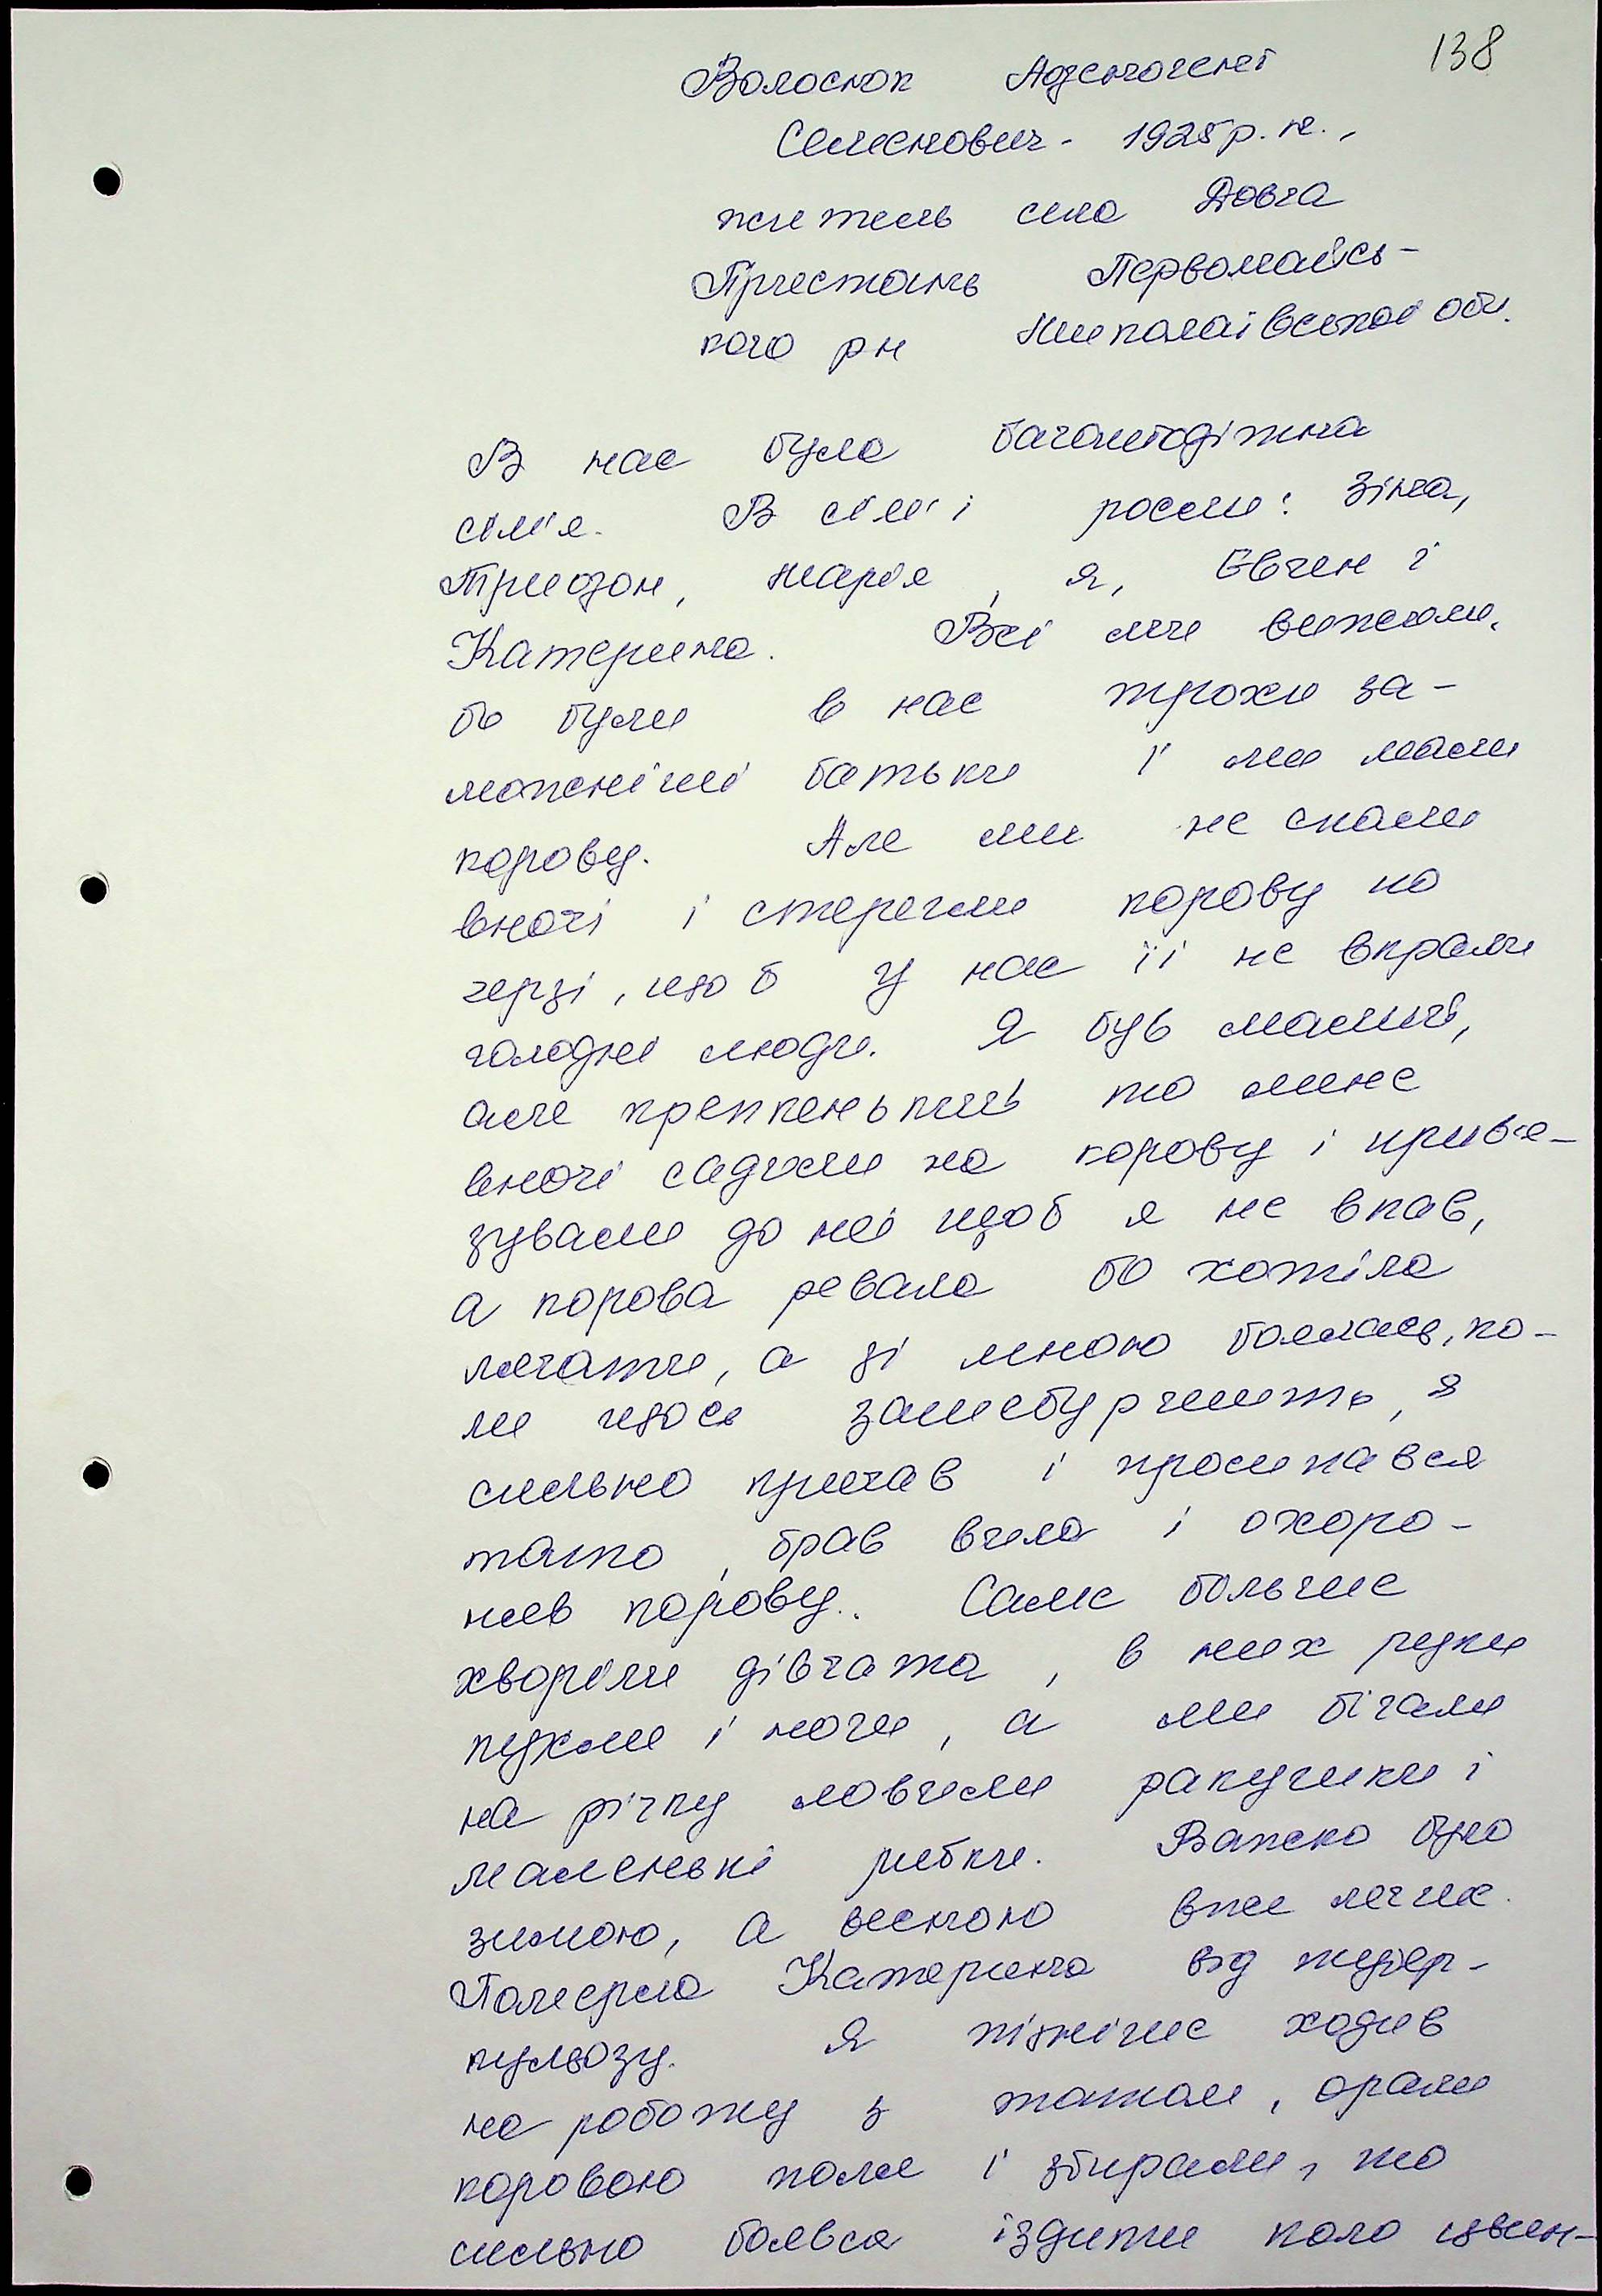 138
Волосюк Адемогенй
Семенович - 1925 р. н.,
житель села Довга
Пристань Первомайсь-
кого р-н Миколаївської обл.
В нас була багатодітна
сім'я. В сім'ї росли: Зіна,
Триозон, Марія, я, Євген і
Катерина. Всі ми вижили,
бо були в нас трохи за-
можніші батьки і ми мали
корову. Але ми не спали
вночі і стерегли корову по
черзі, щоб у нас її не вкрали
голодні люди. Я був малий,
але крепкенький то мене
вночі садили на корову і прив'я-
зували до неї щоб я не впав,
а корова ревала бо хотіла
лягати, а зі мною боялась, ко-
ли щось зашебуршить, я
сильно кричав і просипався
тато, брав вила і охоро-
няв корову. Саме больше
хворіли дівчата, в них руки
пухли і ноги, а ми бігали
на річку ловили ракушки і
маленькі рибки. Важко було
зимою, а весною вже легше.
Померла Катерина від тубер-
кульозу. Я пізніше ходив
на роботу з татом, орали
коровою поле і збирали, то
сильно боявся їздити коло цвин-